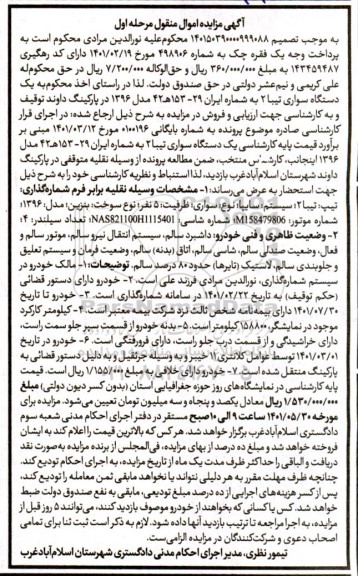 آگهی مزایده اموال منقول مرحله اول
به موجب تصمیم ۱۴۰۱۵۰۳۹۰۰۰۰۹۹۹۰۸۸ محکوم‌علیه نورالدین مرادی محکوم است به
پرداخت وجه یک فقره چک به شماره ۴۹۸۹۰۶ مورخ ۱۴۰۱/۰۲/۱۹ دارای کد رهگیری
۱۴۳۴۵۹۴۸۷ به مبلغ ۳۶۰/۰۰۰/۰۰۰ ریال و حق‌الوکاله ۷/۲۰۰/۰۰۰ ریال در حق محکوم‌له
علی کریمی و نیم‌عشر دولتی در حق صندوق دولت. لذا در راستای اخذ محکوم‌به یک
دستگاه سواری تیبا۲ به شماره ایران ۲۹-۱۵۳ص۴۲ مدل ۱۳۹۶ در پارکینگ داوند توقیف
و به کارشناسی جهت ارزیابی و فروش در مزایده به شرح ذیل ارجاع شده: در اجرای قرار
کارشناسی صادره موضوع پرونده به شماره بایگانی ۰۱۰۰۱۹۶ مورخ ۱۴۰۱/۰۳/۱۲ مبنی بر
برآورد قیمت پایه کارشناسی یک دستگاه سواری تیبا۲ به شماره ایران ۲۹-۱۵۳ص۴۲ مدل
۱۳۹۶ اینجانب، کارشناس منتخب، ضمن مطالعه پرونده از وسیله نقلیه متوقفی در پارکینگ
داوند شهرستان اسلام‌آبادغرب بازدید، لذا استنباط و نظریه کارشناسی خود را به شرح ذیل
جهت استحضار به عرض می‌رساند: ۱- مشخصات وسیله نقلیه برابر فرم شماره‌گذاری:
تیپ: تیبا۲؛ سیستم: سایپا؛ نوع: سواری؛ ظرفیت: ۵ نفر؛ نوع سوخت: بنزین؛ مدل: ۱۳۹۶؛
شماره موتور: M158479806؛ شماره شاسی: NAS821100H1115401؛ تعداد سیلندر: ۴؛
۲- وضعیت ظاهری و فنی خودرو: داشبرد سالم، سیستم انتقال نیرو سالم، موتور سالم و
فعال، وضعیت صندلی سالم، شاسی سالم، اتاق (بدنه) سالم، وضعیت فرمان و سیستم تعلیق
و جلوبندی سالم، لاستیک (تایرها) حدود ۸۰ درصد سالم. توضیحات: ۱- مالک خودرو در
سیستم شماره‌گذاری، نورالدین مرادی فرزند علی است. ۲- خودرو دارای دستور قضائی
(حکم توقیف) به تاریخ ۱۴۰۱/۰۲/۲۲ در سامانه شماره‌گذاری است. ۳- خودرو تا تاریخ
۱۴۰۱/۰۷/۳۰ دارای بیمه‌نامه شخص ثالث نزد شرکت بیمه معتبر است. ۴- کیلومتر کارکرد
موجود در نمایشگر، ۱۵۸۸۰۰ کیلومتر است. ۵- بدنه خودرو از قسمت سپر جلو سمت راست،
دارای خراشیدگی و از قسمت درب جلو راست، دارای فرورفتگی است. ۶- خودرو در تاریخ
۱۴۰۱/۰۳/۰۱ توسط عوامل کلانتری ۱۱ خیبر و به وسیله جرثقیل و به دلیل دستور قضائی به
پارکینگ منتقل شده است. ۷- خودرو دارای خلافی به مبلغ ۱/۱۵۵/۰۰۰ ریال است. قیمت
پایه کارشناسی در نمایشگاه‌های روز حوزه جغرافیایی استان (بدون کسر دیون دولتی) مبلغ
۱/۵۳۰/۰۰۰/۰۰۰ ریال معادل یکصد و پنجاه و سه میلیون تومان تعیین می‌شود. مزایده برای
مورخه ۱۴۰۱/۰۵/۳۰ ساعت ۹ الی ۱۰ صبح مستقر در دفتر اجرای احکام مدنی شعبه سوم
دادگستری اسلام‌آبادغرب برگزار خواهد شد. هر کس که بالاترین قیمت را اعلام کند به ایشان
فروخته خواهد شد و مبلغ ده درصد از بهای مزایده، فی‌المجلس از برنده مزایده به‌صورت نقد
دریافت و الباقی را حداکثر ظرف مدت یک ماه از تاریخ مزایده، به اجرای احکام تودیع کند.
چنانچه ظرف مهلت مقرر به هر دلیلی نتواند یا نخواهد مابقی ثمن معامله را تودیع کند،
پس از کسر هزینه‌های اجرایی از ده درصد مبلغ تودیعی، مابقی به نفع صندوق دولت ضبط
خواهد شد. کس یا کسانی که بخواهند از خودرو موصوف بازدید کنند، می‌توانند ۵ روز قبل از
مزایده، به اجرا مراجعه تا ترتیب بازدید آنها داده شود. لازم به ذکر است ثبت ثنا برای تمامی
اصحاب دعوی و شرکت‌کنندگان در مزایده الزامی‌ست.
تیمور نظری، مدیر اجرای احکام مدنی دادگستری شهرستان اسلام‌آبادغرب